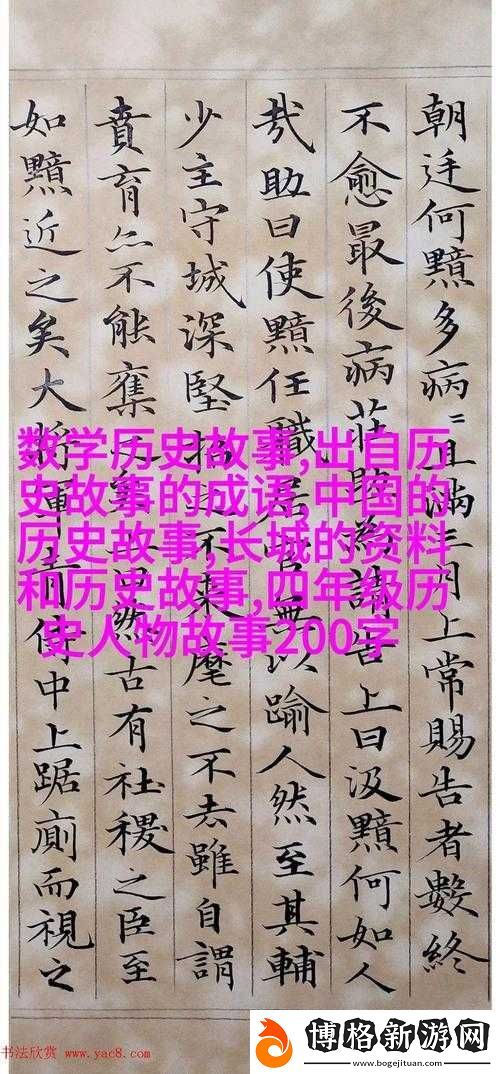 朝廷何黯多病〻且滿三月上常賜告者數終
不愈最後病莊助為請告上曰汲黯何如人
哉助曰使黯任職居官無以踰人然至其輔
少主守城深堅招之不来麾之不去雖自謂
賁育亦不能奪之矣上曰然古有社稷之臣至
如黯近之矣大將軍青侍中上踞廁而視之
数学历史故事,出自历
史故事的成语,中国的
历史故事,长城的资料
和历史故事,四年级历
史人物故事200字
书法欣赏 www.yac8.com
博格新游网
www.bogejituan.com